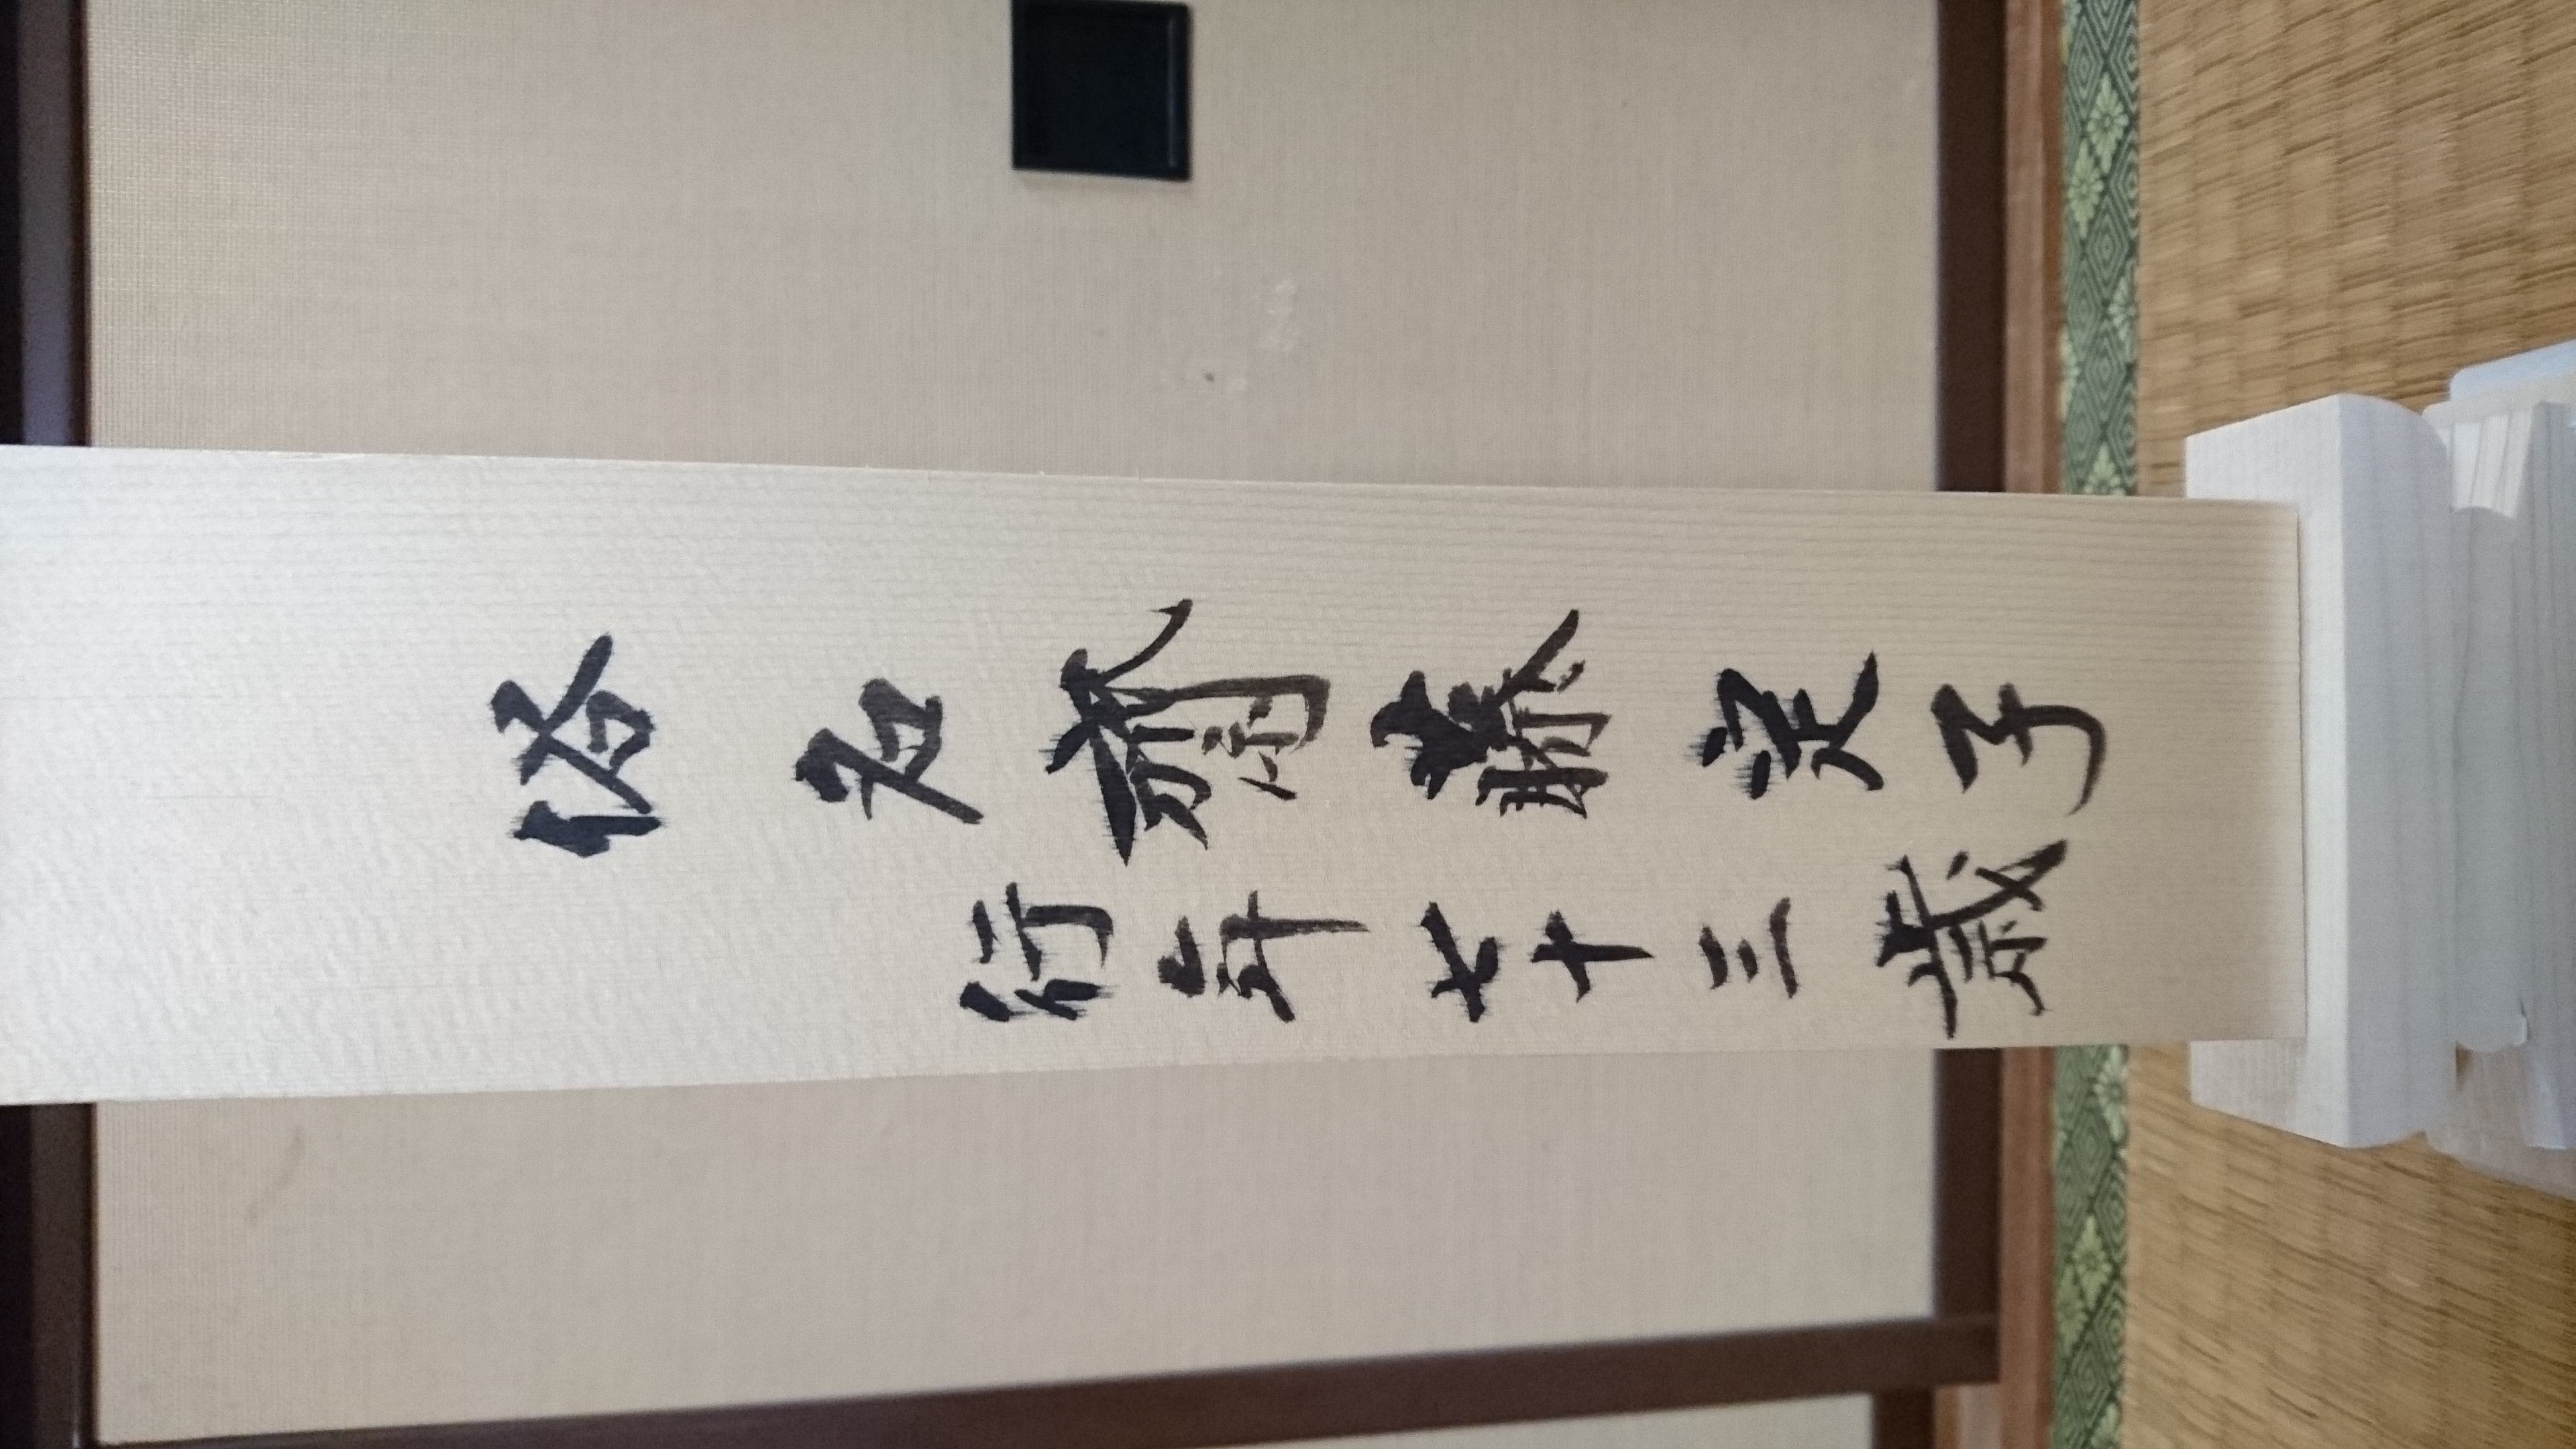 俗名齋藤淀子
行年七十三歳